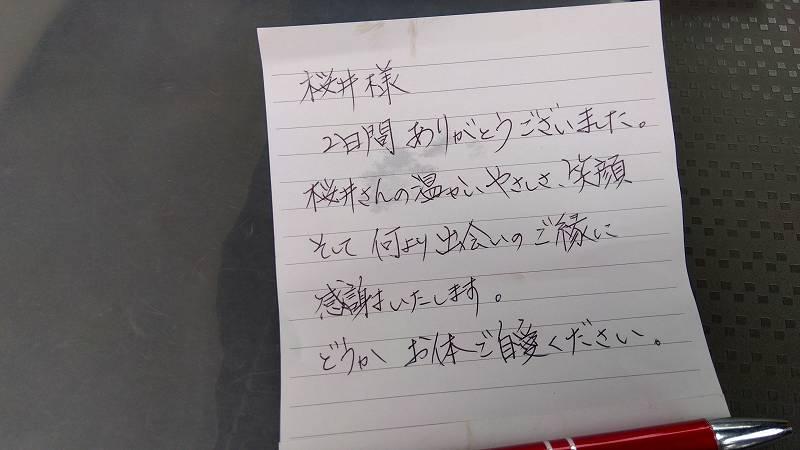 桜井様
2日間ありがとうございました。
桜井さんの温かいやさしさ、笑顔
そして何より出会いのご縁に
感謝いたします。
どうかお体ご自愛ください。